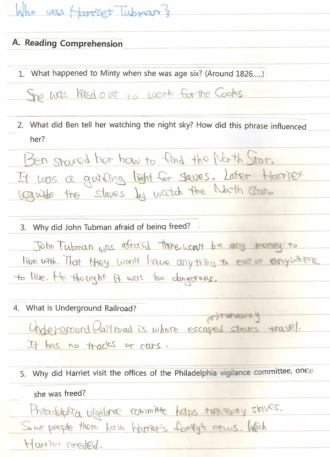 Who was Harriet Tubman?
A. Reading Comprehension
1. What happened to Minty when she was age six? (Around 1826....)
She was hired out to work for the Cooks.
2. What did Ben tell her watching the night sky? How did this phrase influenced
her?
Ben showed her how to find the North Star.
It was a guiding light for slaves. Later Harriet
the slaves by watch the North Star.
3. Why did John Tubman afraid of being freed?
John Tubman was afraid there won't be any money to
live with. That they won't have anything to eat or anywhere
to live. He thought it was too dangerous.
4. What is Underground Railroad?
or runaway
Underground Railroad is where escaped slaves travel.
It has no tracks or cars.
5. Why did Harriet visit the offices of the Philadelphia vigilance committee, once
she was freed?
Philadelphia vigilance committe helps runaway slaves.
Some people there have harriet's family's news. Which
Harriet needed.